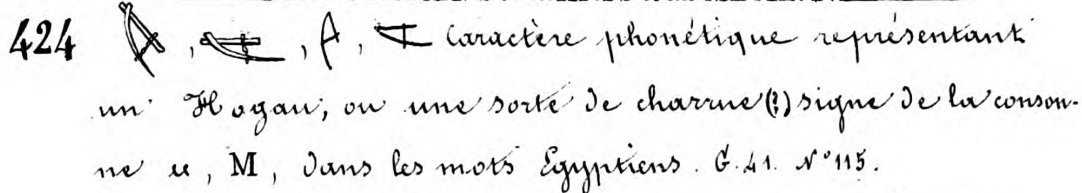 424 , , , Caractère phonétique représentant
un Hogau, ou une sorte de charrue (?) signe de la conson-
ne ⲙ, M, dans les mots Égyptiens. G. 41. N° 115.